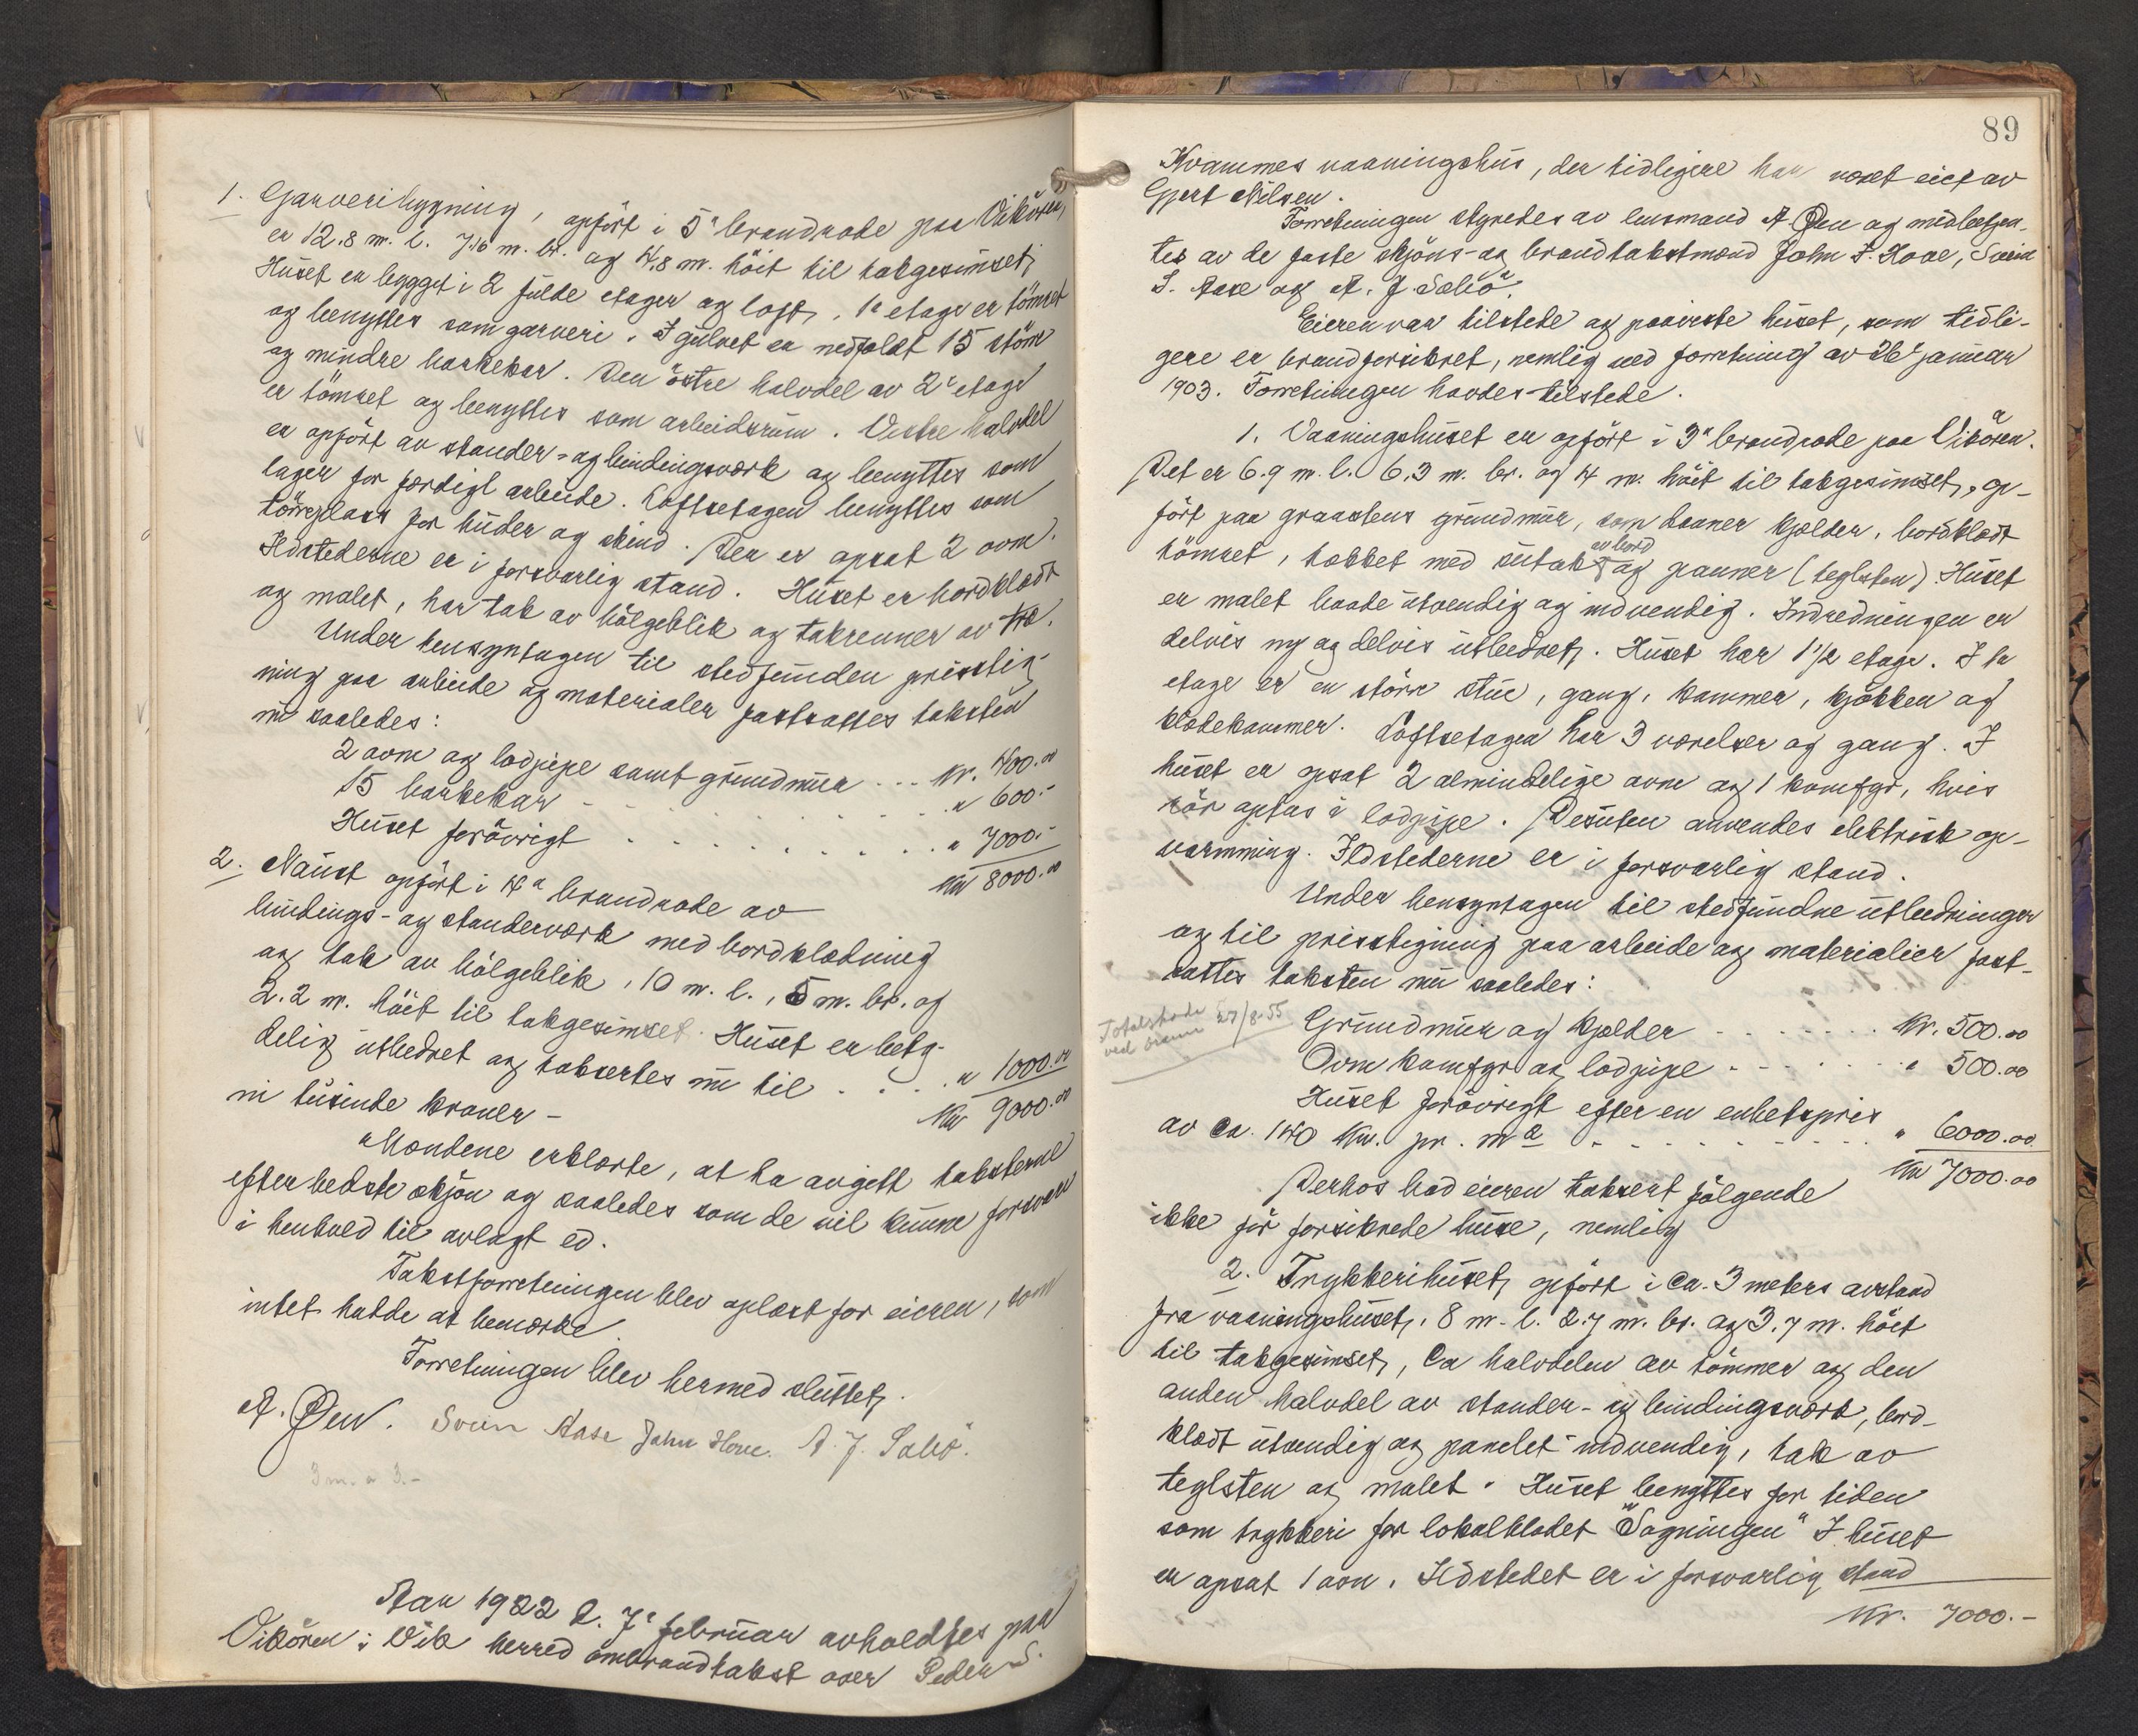 1. Garveribygning, opført i 5te brandrode paa Vikøren,
er 12.8 m. l. 7.6 m. br. og 4.8 m. höit til takgesimset;
Huset er bygget i 2 fulde etager og loft. 1ste etage er tömret
og benyttes som garveri. I gulvet er nedfældt 15 större
og mindre barkekar. Den östre halvdel av 2den etage
er tömret og benyttes som arbeidsrum. Vestre halvdel
er opfört av stander- og bindingsverk og benyttes som
lager for færdigt arbeide. Loftsetagen benyttes som
törreplass for huder og skind. Der er opsat 2 ovne.
Ildstederne er i forsvarlig stand. Huset er bordklædt
og malet, har tak av bölgeblik og takrenner av træ.
Under hensyntagen til stedfunden prisstig-
ning paa arbeide og materialer fastsattes taksten
nu saaledes:
2 ovne og lodpipe samt grundmur ... Kr. 400.00
15 barkekar - - . . . . . . " 600.-
Huset forövrigt . . . . . . . . . " 7000.-
Kr 8000.00
2. Naust opfört i 4de brandrode av
bindings- og standerværk med bordklædning
og tak av bölgeblik, 10 m. l., 5 m. br. og
2.2 m. höit til takgesimset. Huset er bety-
delig utbedret og taksertes nu til . . . . " 1000.00
Kr 9000.00
ni tusinde kroner -
Mændene erklærte, at ha avgitt taksterne
efter bedste skjön og saaledes som de vil kunne forsvare
i henhold til avlagt ed.
Takstforretningen blev oplæst for eieren, som
intet hadde at bemærke.
Forretningen blev hermed sluttet.
A. Øen. Svein Aase John Hove. A. J. Sæbö.
3 m. a 3.-
Aar 1922 d. 7de februar avholdtes paa
Vikören i Vik herred ombrandtakst over Peder S.
89
Kvammes vaaningshus, der tidligere har været eiet av
Gjert Nilsen.
Forretningen styredes av lensmand A Øen og medbetjen-
tes av de faste skjöns- og brandtakstmænd John J. Hove, Svein
S. Aase og A. J. Sæbö.
Eieren var tilstede og paaviste huset, som tidli-
gere er brandforsikret, nemlig ved forretning av 26de januar
1903. Forretningen havdes tilstede.
1. Vaaningshuset er opfört i 3die brandrode paa Vikören.
Det er 6.9 m. l. 6.3 m. br. og 4 m. höit til takgesimset, op-
fört paa graastens grundmur, som danner kjelder, bordklædt
av bord
tömret, tækket med sutak og panner (teglsten). Huset
er malet baade utvendig og indvendig. Indredningen er
delvis ny og delvis utbedret. Huset har 1 1/2 etage. I 1ste
etage er en större stue, gang, kammer, kjökken og
klædekammer. Loftsetagen har 3 værelser og gang. I
huset er opsat 2 almindelige ovne og 1 komfyr, hvis
rör optas i lodpipe. Desuten anvendes elektrisk op-
varmning. Ildstederne er i forsvarlig stand.
Under hensyntagen til stedfundne utbedninger
og til prisstigning paa arbeide og materialier fast-
sattes taksten nu saaledes:
Totalskade 27/8-55
ved brann
Grundmur og kjelder - - . . . . . . Kr. 500.00
Ovne komfyr og lodpipe - - - . . . . . " 500.00
Huset forövrigt efter en enhetspris
av ca. 140 Kr. pr. m2 - - - - - - . . . . " 6000.00
Kr 7000.00
Derhos bad eieren taksert fölgende
ikke för forsikrede huse, nemlig
2. Trykkerihuset, opfört i ca. 3 meters avstand
fra vaaningshuset, 8 m. l. 2.7 m. br. og 3.7 m. höit
til takgesimset, ca halvdelen av tömmer og den
anden halvdel av stander- og bindingsværk, bord-
klædt utvendig og panelet indvendig, tak av
teglsten og malet. Huset benyttes for tiden
som trykkeri for lokalbladet "Sogningen" I huset
er opsat 1 ovn. Ildstedet er i forsvarlig stand
Kr. 7000.-